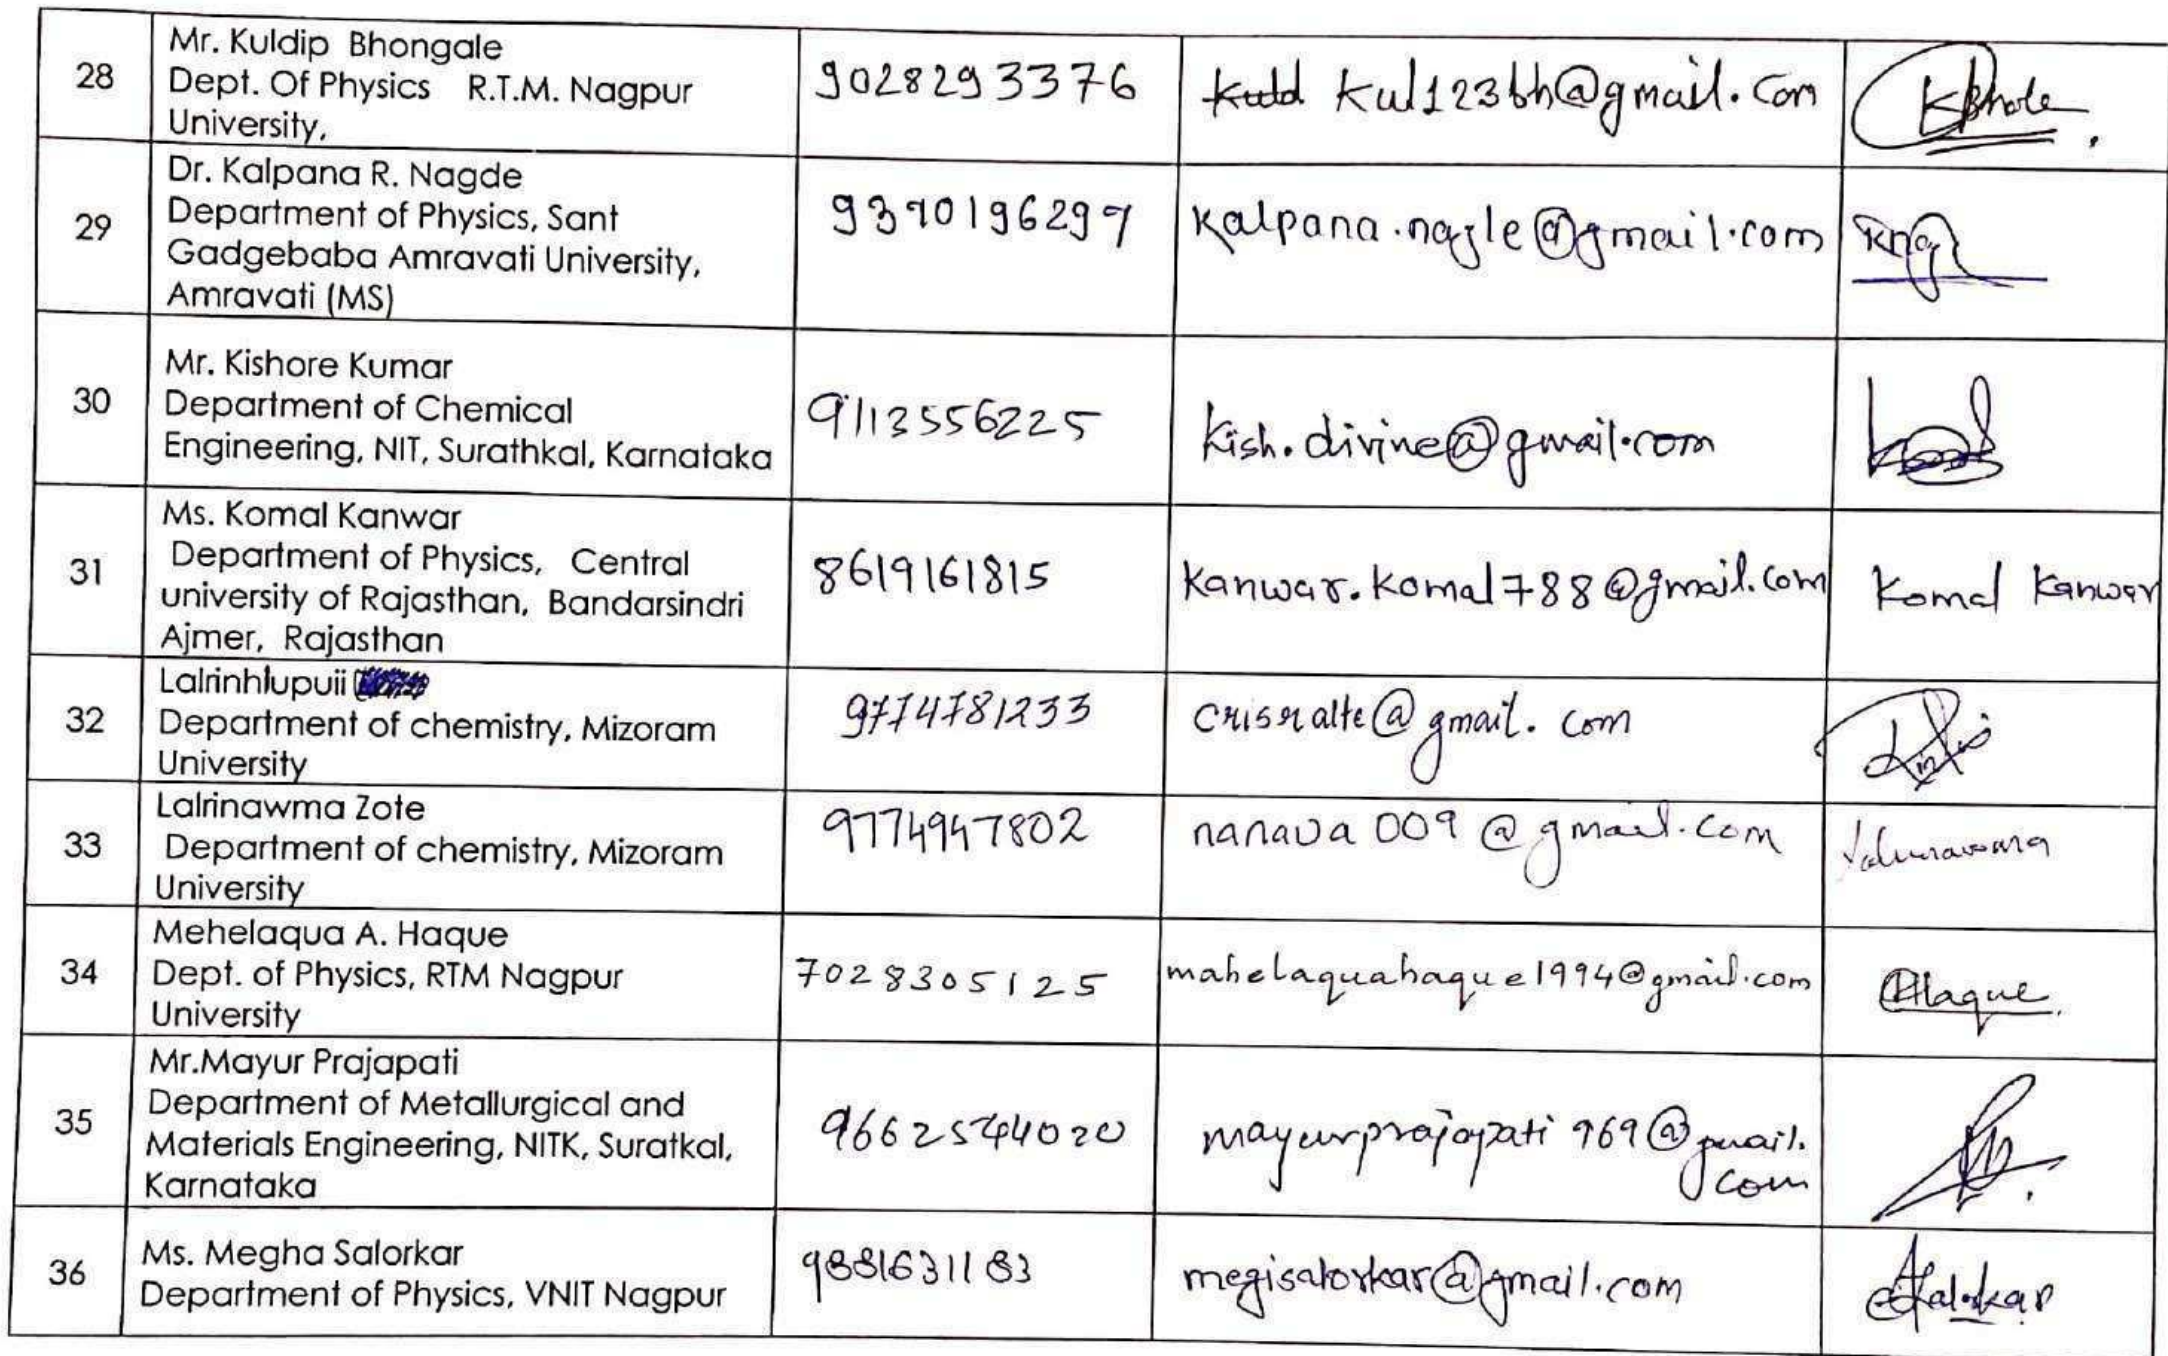 28
Mr. Kuldip Bhongale
Dept. Of Physics R.T.M. Nagpur
University,
9028293376
kul123bh@gmail.com
29
Dr. Kalpana R. Nagde
Department of Physics, Sant
Gadgebaba Amravati University,
Amravati (MS)
9370196297
30
Mr. Kishore Kumar
Department of Chemical
Engineering, NIT, Surathkal, Karnataka
9113556225
kish.divine@gmail.com
31
Ms. Komal Kanwar
Department of Physics, Central
university of Rajasthan, Bandarsindri
Ajmer, Rajasthan
8619161815
kanwar.komal788@gmail.com
Komal Kanwar
32
Lalrinhlupuii
Department of chemistry, Mizoram
University
9774781233
crisralte@gmail.com
33
Lalrinawma Zote
Department of chemistry, Mizoram
University
9774947802
nanava009@gmail.com
34
Mehelaqua A. Haque
Dept. of Physics, RTM Nagpur
University
7028305125
mahelaquahaque1994@gmail.com
Haque
35
Mr.Mayur Prajapati
Department of Metallurgical and
Materials Engineering, NITK, Suratkal,
Karnataka
9662544020
mayurprajapati969@gmail.
com
36
Ms. Megha Salorkar
Department of Physics, VNIT Nagpur
9881631183
megisalorkar@gmail.com